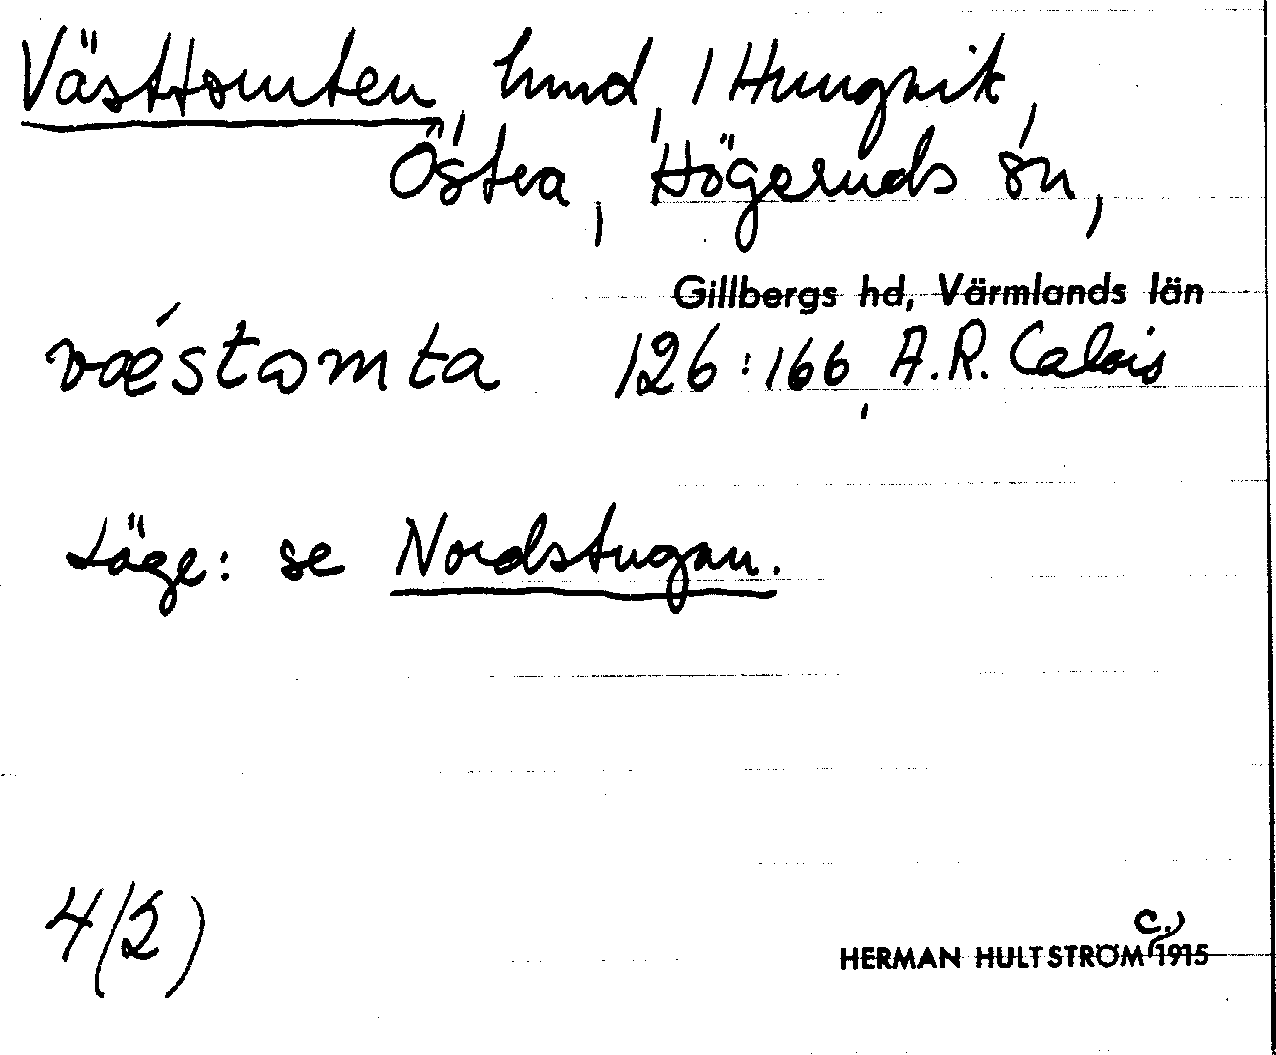 Västtomten, hmd, 1 Hungvik,
Östra, Högeruds sn,
Gillbergs hd, Värmlands län
væ´stωmta 126:166, A.R. Calais
Läge: se Nordstugan.
4(2)
HERMAN HULTSTRÖM (c.) 1915